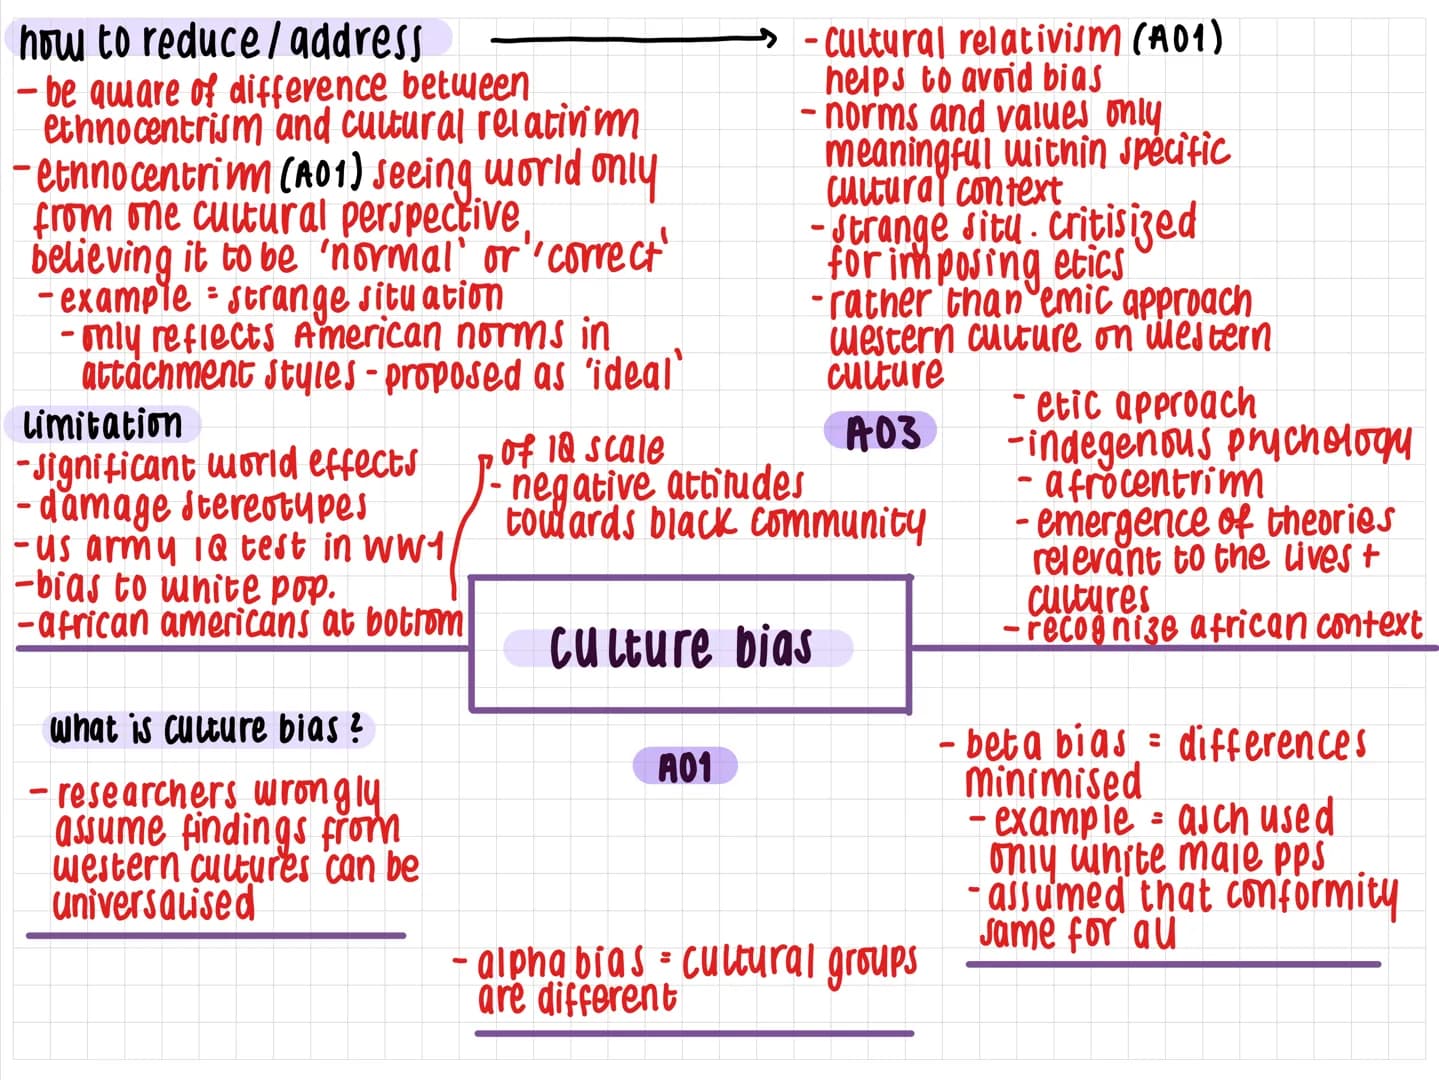 how to reduce / address
- be aware of difference between
ethnocentrism and cultural relativism
- ethnocentrism (A01) seeing world only
from one cultural perspective
believing it to be 'normal' or 'correct'
- example = strange situation
- only reflects American norms in
attachment styles - proposed as 'ideal'
- cultural relativism (A01)
helps to avoid bias
- norms and values only
meaningful within specific
cultural context
- strange situ. critisized
for imposing etics
- rather than emic approach
western culture on western
culture
limitation
- significant world effects
- damage stereotypes
- us army IQ test in WW1
- bias to white pop.
- african americans at bottom
of IQ scale
- negative attitudes
towards black community
A03
- etic approach
- indegenous psychology
- afrocentrism
- emergence of theories
relevant to the lives +
cultures
- recognize african context
culture bias
what is culture bias?
- researchers wrongly
assume findings from
western cultures can be
universalised
A01
- alpha bias = cultural groups
are different
- beta bias = differences
minimised
- example = asch used
only white male pps
- assumed that conformity
same for all